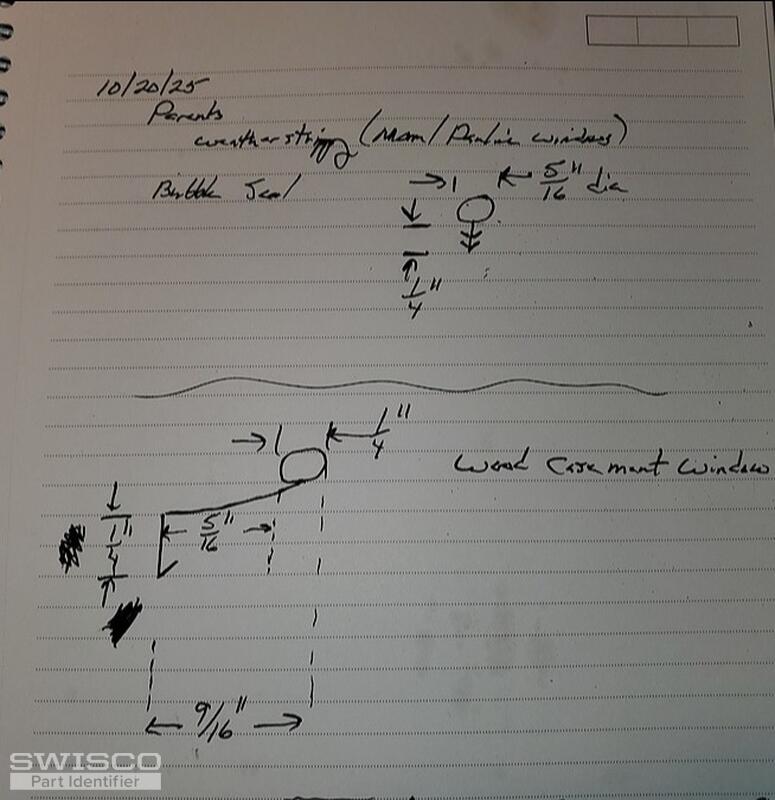 10/20/25
Parents
weather stripping (Mom/Pauline windows)
Bubble Seal
5/16" dia
1/4"
1/4"
Wood Casement Window
5/16"
1/4"
9/16"
SWISCO
Part Identifier